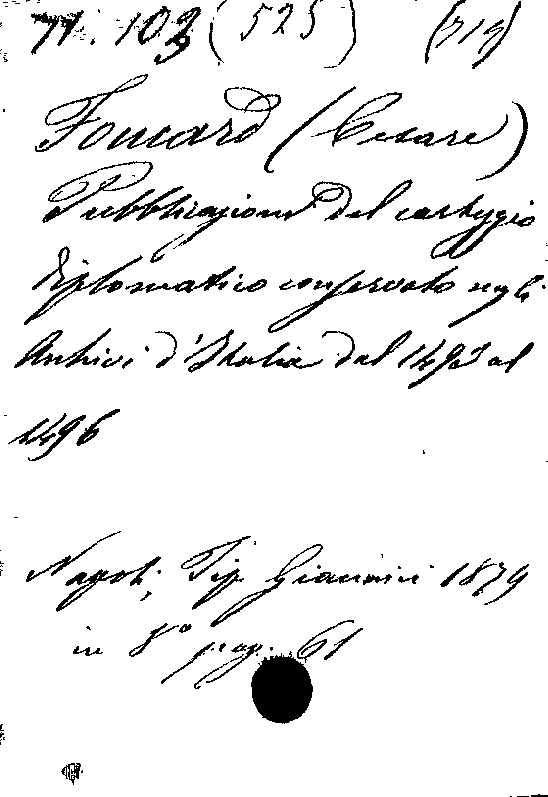 71. 103 (525) (719)
Foucard (Cesare)
Pubblicazione del carteggio
diplomatico conservato negli
Archivi d'Italia dal 1493 al
1496
Napoli, Tip. Giannini 1879
in 8° pag. 61